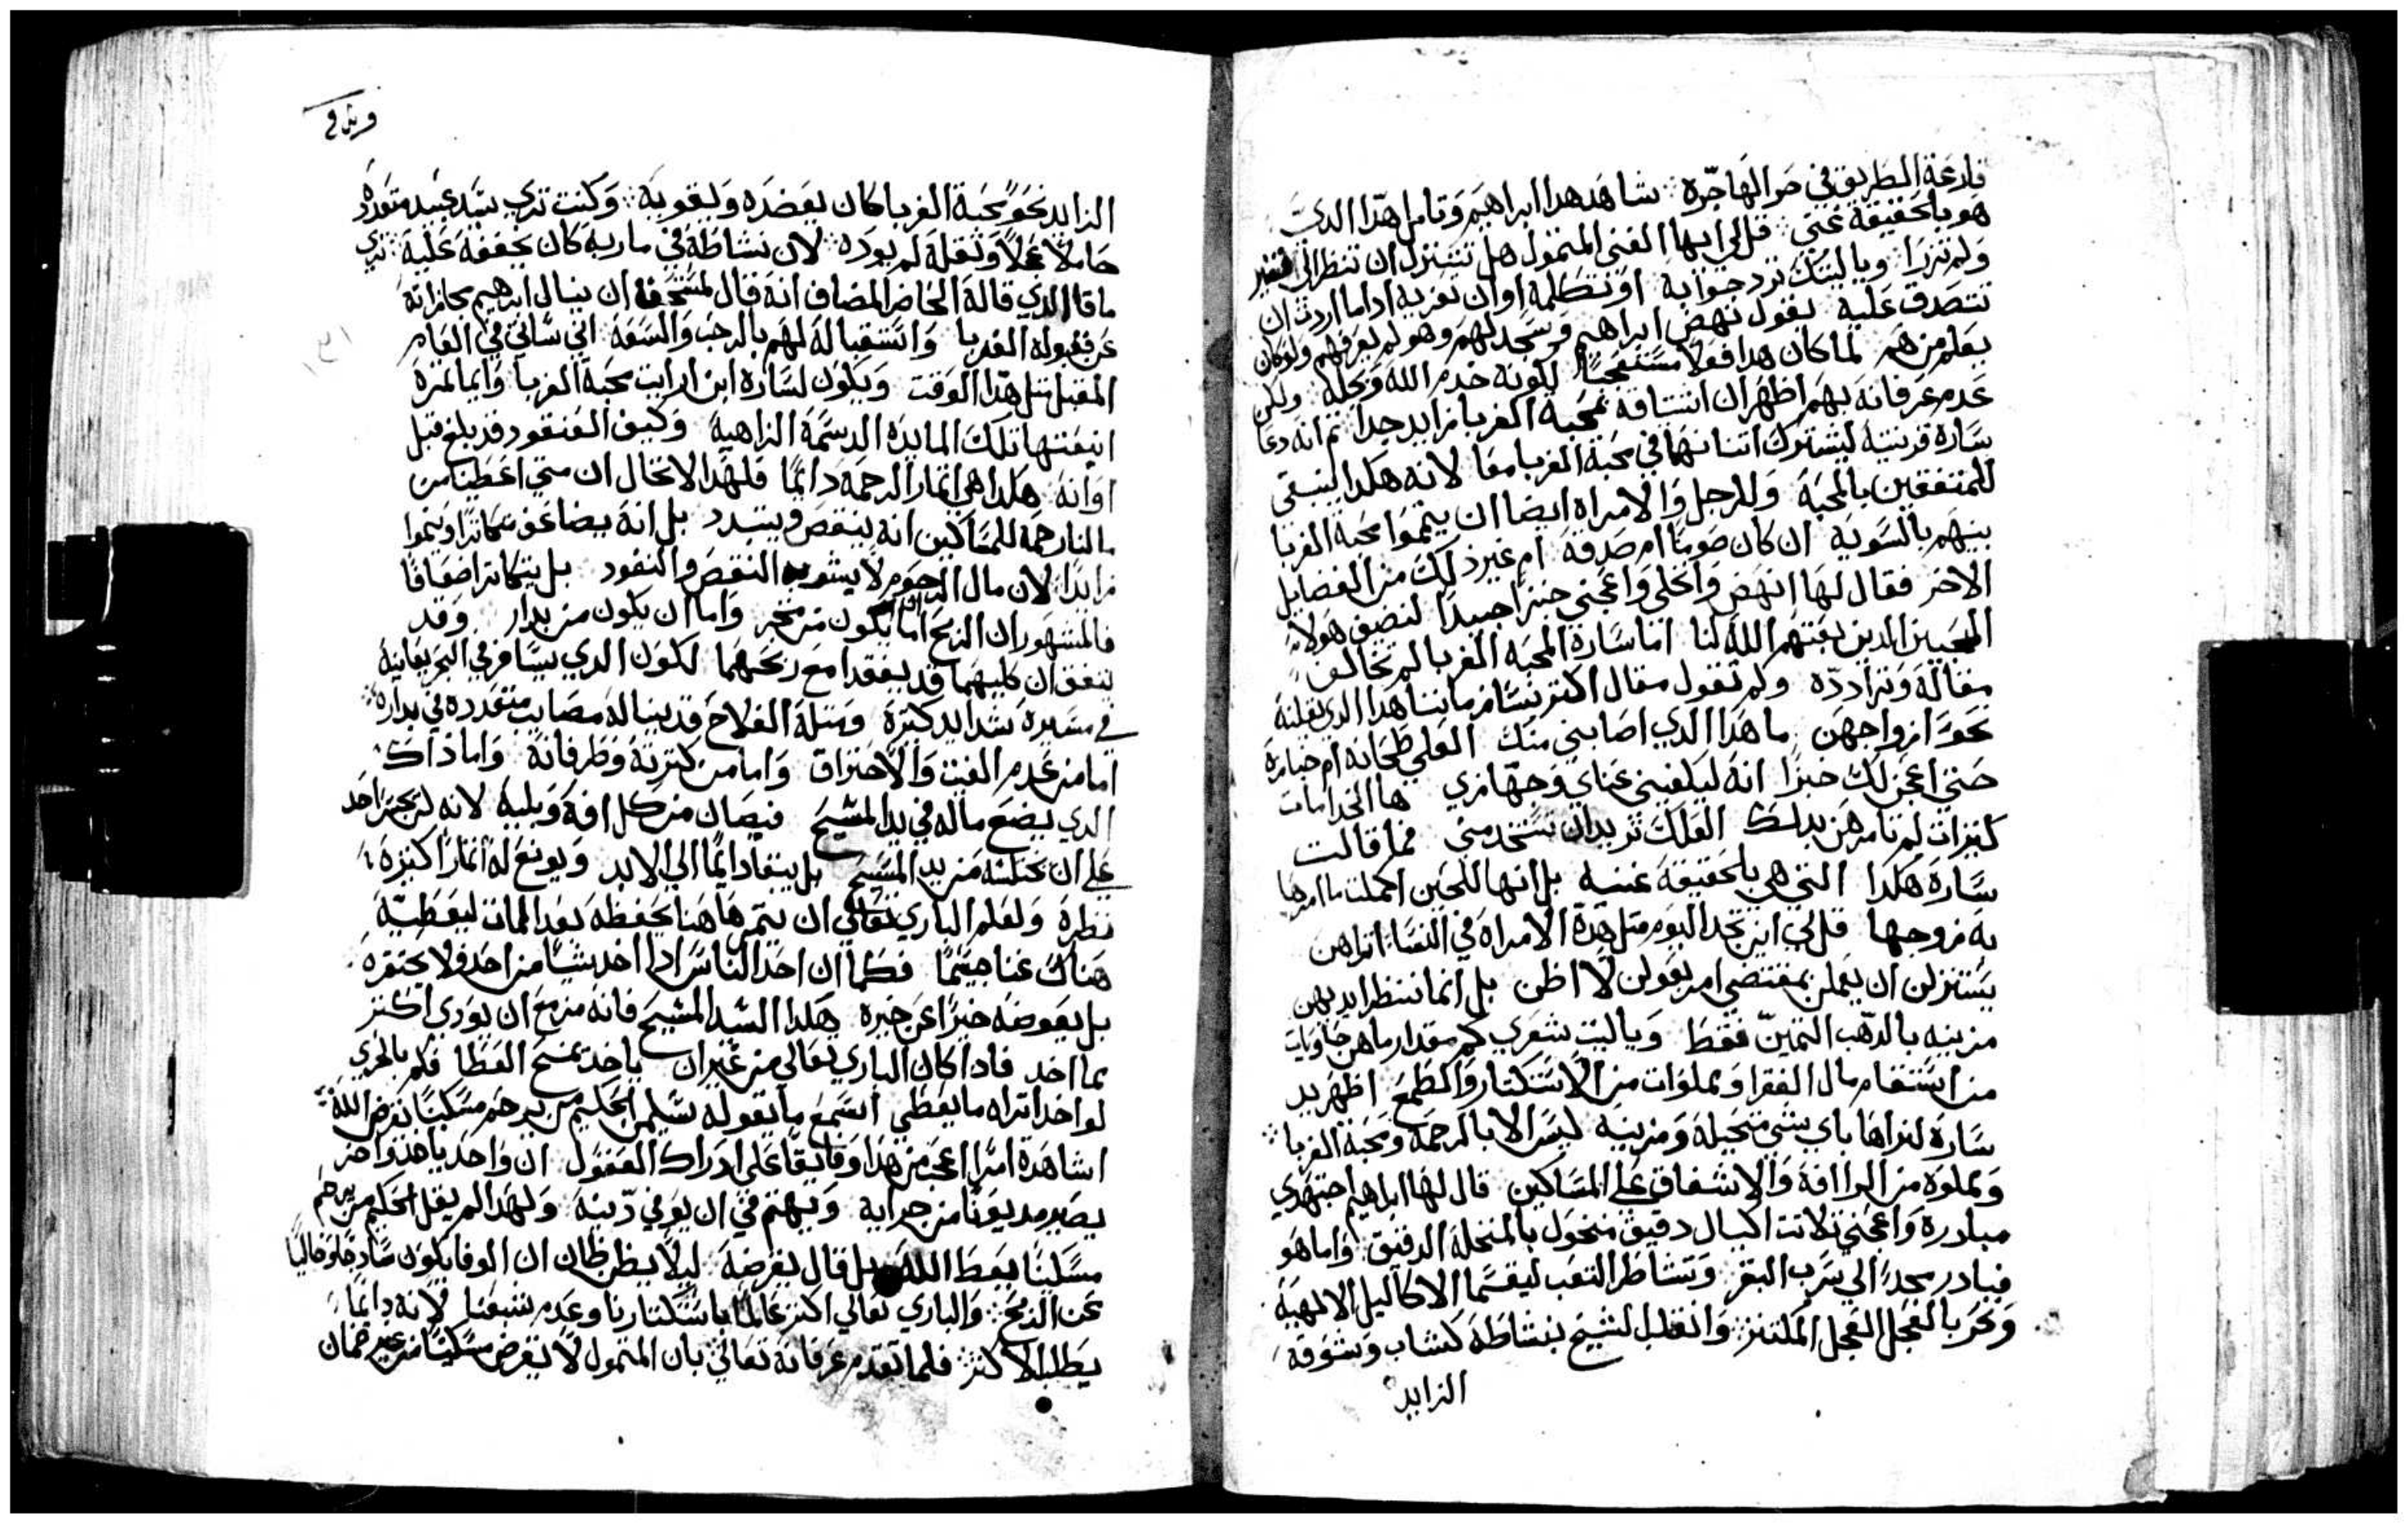 قارعة الطريق في حر الهاجرة شاهد هدا ابراهيم وتامل هدا الدي
هو بالحقيقة غني قل لي ايها الغني المتمول هل تتنزل ان تنظر الى فقير
ولم تزرا ويا ليتك ترد جوابه او تتكلمه او ان تعزيه ادا ما اردت ان
تتصدق عليه نقول نهض ابراهيم وسجد لهم وهو لم يعرفهم ولو كان
يعلم من هم لما كان هدا فعلا مستعجبا لكونه خدم الله وبجله ولكن
عدم عرفانه بهم اظهر ان اشتياقه لمحبة الغربا زايد جدا ثم انه دعا
ساره قرينته ليشترك اتنانهما في محبة الغربا معا لانه هكدا ينبغي
للمتفقين بالمحبة وللرجل والامراه ايضا ان يتمموا محبة الغربا
بينهم بالسويه ان كان صوما ام صدقه ام غير ذلك من الفضايل
الاخر فقال لها انهضي وانخلي واعجني خبزا جيدا لنضيف هولاء
المحبين الدين بعتهم الله لنا اما ساره المحبه الغربا لم تخالف
مقاله وترادده ولم تقول مقال اكتر نسا زماننا هدا الدي يقلنه
نحو ازواجهن ما هدا الدي اصابني منك العلي طحانه ام خبازه
حتي اعجن لك خبزا انه ليكفيني عناي وجهازي ها الخدامات
كتيرات لم تامرهن بدلك العلك تريد ان تستخدمني فما قالت
ساره هكدا التي هي بالحقيقة غنيه بل انها للحين اكملت ما امرها
به زوجها قل لي اين تجد اليوم متل هدة الامراه في النسا اتراهن
يستنزلن ان يعملن بمقتضي امر بعولهن لا اظن بل انما ننظر ايديهن
مزينه بالدهب التمين فقط ويا ليت شعري كم مقدار ما هن حاويات
من استقام مال الفقرا ومملوات من الاستكتار والطمع اظهر يد
ساره لنراها باي شي متحيله ومزينه ليس الا بالرحمه ومحبة الغربا
ومملوه من الراافة والاشفاق على المساكين قال لها ابراهيم اجتهدي
مبادره واعجني تلاتت اكيال دقيق منخول بالمنخله الدقيق واما هو
فبادر مجدا الي سرب البقر وتشاطر التعب ليقسما الاكاليل الالهيه
ونحر بالعجل العجل المكتنز وانقلب الشيخ بنشاطة كشاب وشوقه
الزايد
الزايد نحو محبة الغربا كان يعضده وليقويه وكنت تري سيد عبيد متعدده
حاملا عجلا وثقله لم يوده لان نشاطة في ماربه كان يخففه عليه تري
ما قا الدي قاله الحاضر المضاف انه قال لمستحقا ان ينال ابرهيم مجازاته
عن قبوله الغربا وانتقباله لهم بالرحب والسعه اني ساتي في العام
المقبل متل هدا الوقت ويكون لساره ابن ارايت محبة الغربا وايما تمرة
اينعتها تلك المايده الدسمة الزاهية وكيف العنقود قد بلغ قبل
اوانه هكدا هي اتمار الرحمه دايما فلهدا لا تخال ان متي اعطينا من
مالنا رحمة للمساكين انه ينقص ويتبدد بل انه يضاعف متكاترا وينموا
زايدا لان مال الرحوم لا يشوبه النقص والنفود بل يتكاتر اضعافا
فالمشهور ان الربح اما ان يكون من متجر واما ان يكون من بدار وقد
يتفق ان كليهما قد يفقدا مع ربحهما لكون الدي يسافر في البحر يعاينه
في مسيره شدايد كتيره ومتله الفلاح قد يناله مصايب متعدده في بداره
اما من عدم الغيت والاحتراق واما من كترته وطرفانه واما ذاك
الدي يضع ماله في يد المسيح فيصان من كل افة وبليه لانه لن يجسر احد
على ان يختلسه من يد المسيح بل يبقا دايما الي الابد ويونع له اتمارا كتيره
نظره ولعلم الباري تعالي ان يتمر هاهنا يحفظه بعد الممات ليعطيه
هناك غنا جسيما فكما ان احد الناس ادا اخد شيا من احد فلا يحتقره
بل يعوضه خيرا عن خيره هكدا السيد المسيح فانه مزمع ان يودي اكتر
مما اخد فادا كان الباري تعالي من غير ان ياخد يمنح العطا فلم بالحري
لو اخد اتراه ما يعطي اسمع ما يقوله سليمن الحكيم من يرحم مسكينا يقرض الله
اشاهدة امرا اعجب من هدا وفايقا على ادراك العقول ان واحد ياخد واخر
يصير مديونا من جرايه ويهتم في ان يوفي دينه ولهدا لم يقل الحكيم من يرحم
مسكينا يعط الله بل قال يقرضه ليلا يظن ظان ان الوفا يكون سادجا وخاليا
عن الربح والباري تعالي اكتر عالما باستكتارنا وعدم شبعنا لانه دايما
يطلب الاكتر فلما تقدم عرفانه تعالي بان المتمول لا يقرض مسكينا من غير ضمان